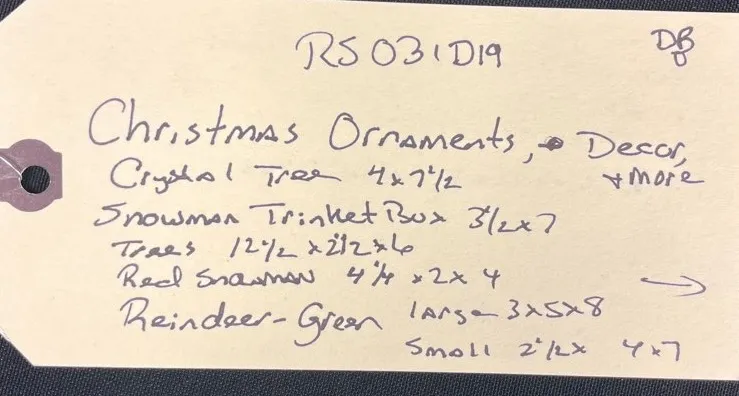 RS031D19
DB
Christmas Ornaments, Decor,
+ more
Crystal Tree 4x7 1/2
Snowman Trinket Box 3 1/2 x 7
Trees 12 1/2 x 2 1/2 x 6
Red Snowman 4 1/4 x 2 x 4 →
Reindeer - Green large 3x5x8
Small 2 1/2 x 4x7